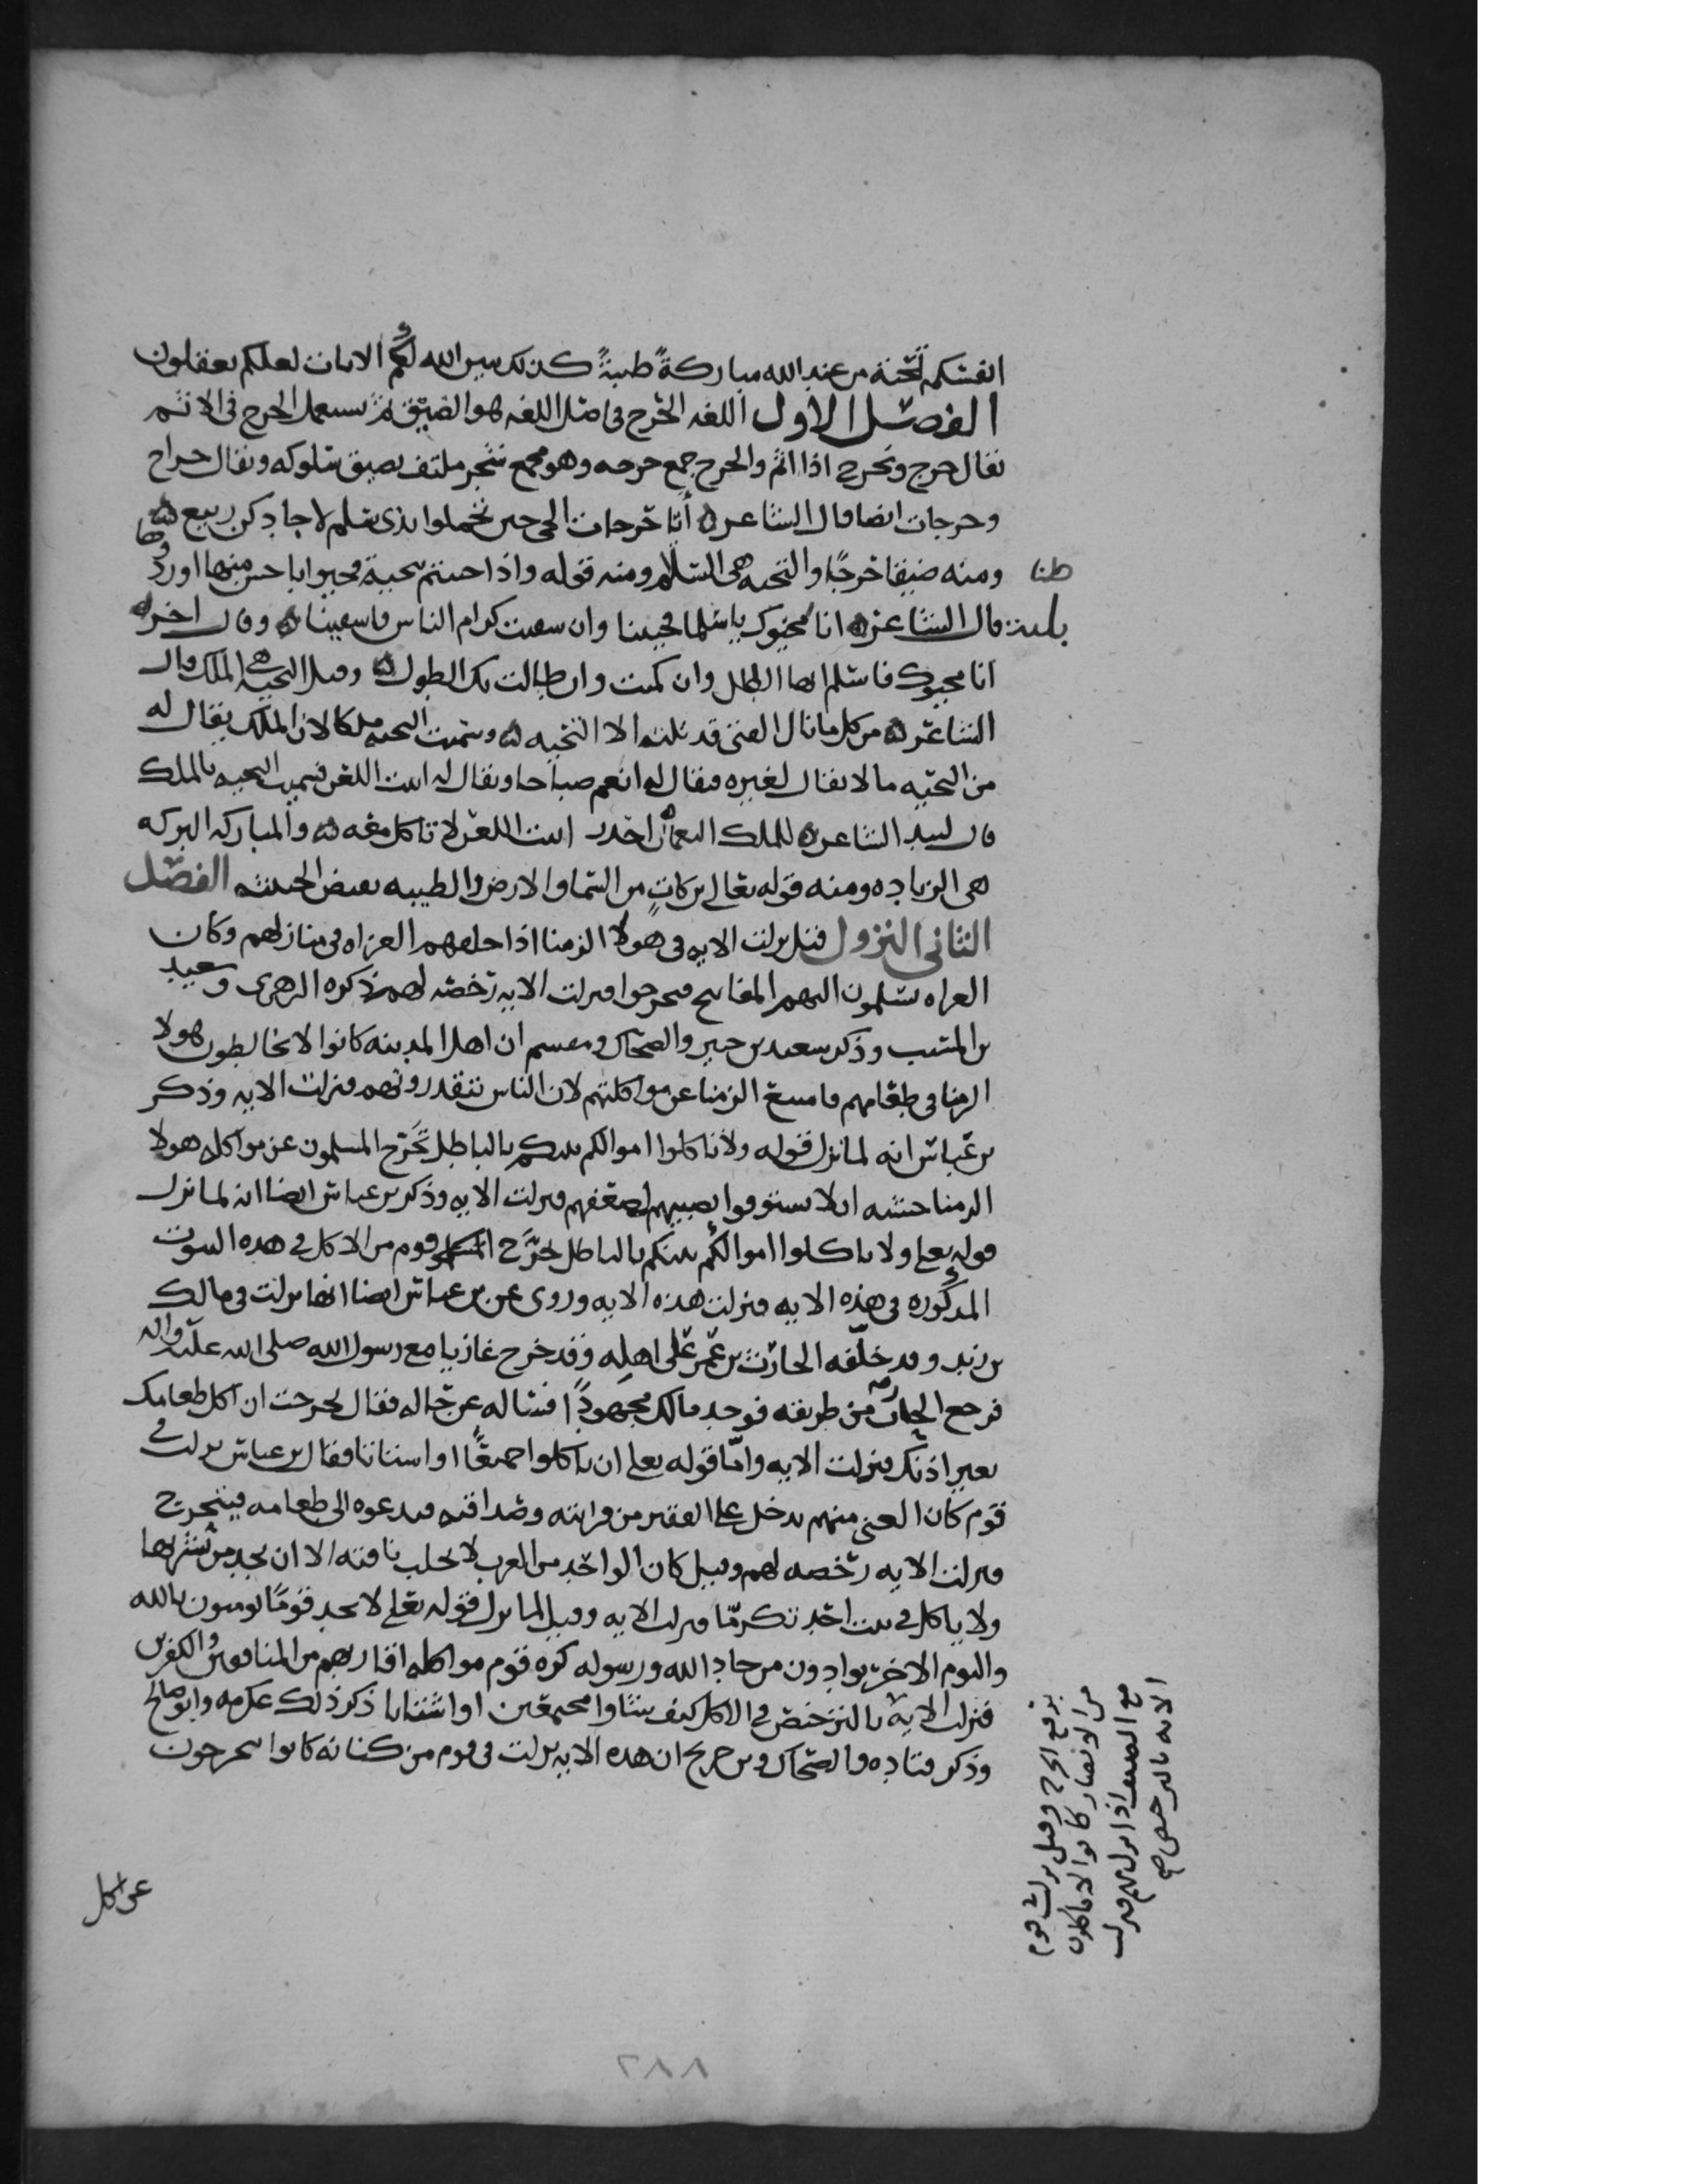 انفسكم تحية من عند الله مباركةً طيبةً كذلك يبين الله لكم الايات لعلكم تعقلون
الفصل الاول اللغه الحرج في اصل اللغه هو الضيق ثم يستعمل الحرج في الاثم
يقال حرج وتحرج اذا اثم والحرج جمع حرجه وهو مجمع شجر ملتف يصيق سلوكه ويقال حراج
وحرجات ايضا قال الشاعر ايا حرجات الحي حين تحملوا بذي سلم لا جادكن ربيع
ومنه ضيقا حرجًا والتحيه هي السلام ومنه قوله واذا حييتم بتحية فحيوا باحسن منها او ردوها
قال الشاعر انا محيوك يا سلما فحيينا وان سقيت كرام الناس فاسقينا وقال اخر
انا محيوك فاسلم ايها الطلل وان كميت وان طالت بك الطول وقيل التحيه هي الملك قال
الشاعر من كل ما نال الفتى قد نلته الا التحيه وسميت التحيه ملكا لان الملك يقال له
من التحيه ما لا يقال لغيره فيقال له انعم صباحا ويقال له ابيت اللعن فسميت التحيه بالملك
قال لبيد الشاعر للملك النعمان ابيت اللعن لا تاكل معه والمباركه البركه
هي الزياده ومنه قوله تعالى بركاتٍ من السما والارض والطيبه نقيض الخبيثه الفصل
الثاني النزول قيل نزلت الايه في هولا الزمنا اذا خلفهم الغزاه في منازلهم وكان
الغزاه يسلمون اليهم المفاتيح فيحرجوا فنزلت الايه رخصه لهم ذكره الزهري وسعيد
بن المسيب وذكر سعيد بن جبير والضحاك ومقسم ان اهل المدينه كانوا لا يخالطون هولا
الزمنا في طعامهم فامتنع الزمنا عن مواكلتهم لان الناس تتقذرونهم فنزلت الايه وذكر
بن عباس انه لما نزل قوله ولا تاكلوا اموالكم بينكم بالباطل تحرج المسلمون عن مواكله هولا
الزمنا خشيه الا يستوفوا نصيبهم لضعفهم فنزلت الايه وذكر بن عباس ايضا انه لما نزل
قوله تعلى ولا تاكلوا اموالكم بينكم بالباطل تحرَّج قوم من الاكل في هذه البيوت
المذكوره في هذه الايه فنزلت هذه الايه وروى عن بن عباس ايضا انها نزلت في مالك
بن زيد وقد خلّفه الحارث بن عمر على اهله وقد خرج غازيا مع رسول الله صلى الله عليه واله
فرجع الحارث من طريقه فوجد مالك مجهودًا فساله عن حاله فقال تحرجت ان اكل طعامك
بغير اذنك فنزلت الايه وامّا قوله تعلى ان تاكلوا جميعًا او اشتاتا فقال بن عباس نزلت في
قوم كان الغني منهم يدخل على الفقير من قرابته وصداقته فيدعوه الى طعامه فيتحرج
فنزلت الايه رخصه لهم وقيل كان الواحد من العرب لا يحلب ناقته الا ان يجد من يشربها
ولا ياكل في بيت احد تكرمّا فنزلت الايه وقيل لما نزل قوله تعلى لا تجد قومًا يومنون بالله
واليوم الاخر يوادون من حاد الله ورسوله كره قوم مواكله اقاربهم من المنافقين والكفرين
فنزلت الايه بالترخيص في الاكل كيف شاوا مجتمعين او اشتاتا ذكر ذلك عكرمه وابو صالح
وذكر قتاده والضحاك وبن جريج ان هذه الايه نزلت في قوم من كنانه كانوا يتحرجون
برفع الحرج وقيل نزلت في قوم
من الانصار كانوا لا ياكلون
مع الضيف اذا نزل بهم فنزلت
الايه بالترخيص
عن اكل
٢٨٨